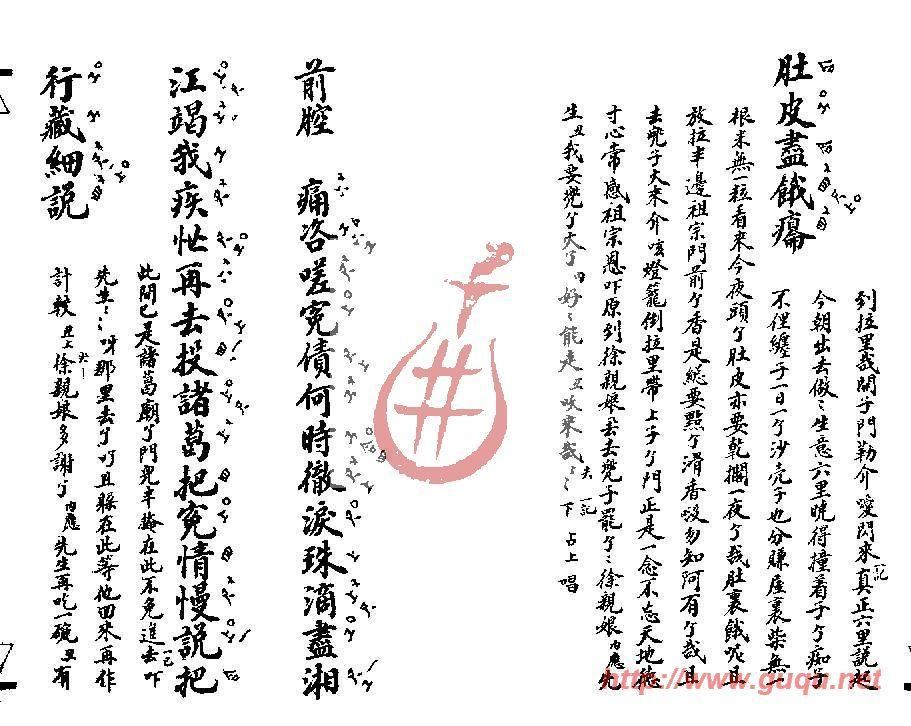 肚皮盡餓癟
到拉里哉開子門勒介噯閃來真正六里說起
今朝出去做〻生意六里曉得撞着子个痴子
不俚纏子一日一个沙壳子也分賺屋裏柴無一
根米無一粒看來今夜頭个肚皮亦要乾擱一夜个哉肚裏餓呢且
放拉半邊祖宗門前个香是緦要點个淸香
勿知阿有个哉且
去兜子大來介咳燈籠倒拉里帶上子个門正是一念不忘天地德
寸心常感祖宗恩吓原到徐親娘去兜子罷个〻徐親娘
生丑我要兜个大个 好〻能走丑哎來哉〻〻下 占上唱
前腔 痛咨嗟寃債何時徹淚珠滴盡湘
江竭我疾忙再去投諸葛把寃情慢說把
此間已是諸葛廟了門兒半掩在此不免進去吓
先生〻〻呀那里去了且躲在此等他回來再作
計較 丑上 徐親娘多謝个 內應 先生再吃一碗 丑 有
行藏細説
http://www.guqu.net